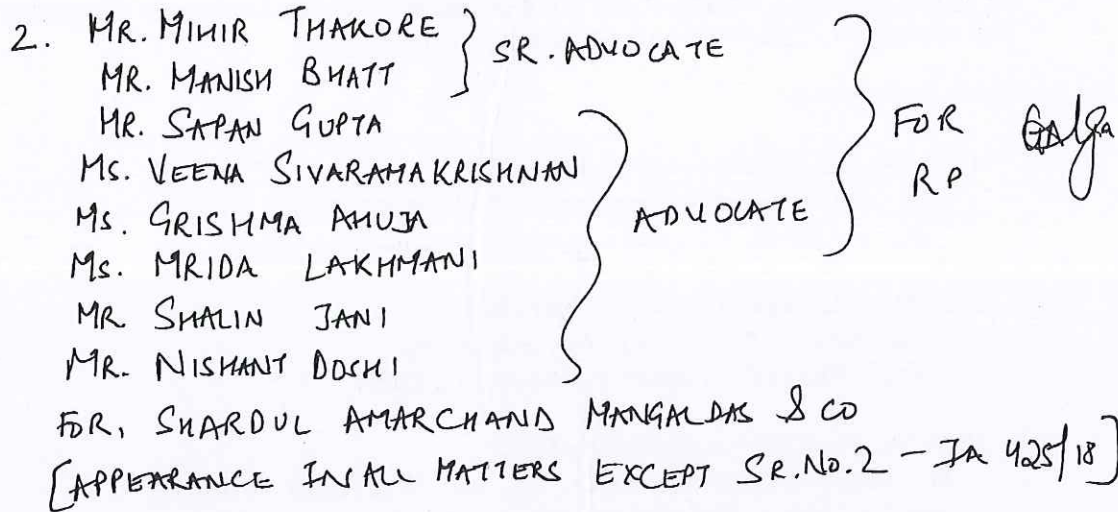 2. MR. MIHIR THAKORE } SR. ADVOCATE
MR. MANISH BHATT
MR. SAPAN GUPTA
MS. VEENA SIVARAMAKRISHNAN
MS. GRISHMA AHUJA
MS. MRIDA LAKHMANI
MR SHALIN JANI
MR. NISHANT DOSHI
ADVOCATE
FOR RP
FOR, SHARDUL AMARCHAND MANGALDAS & CO
[APPEARANCE IN ALL MATTERS EXCEPT SR. NO. 2 - IA 425/18]